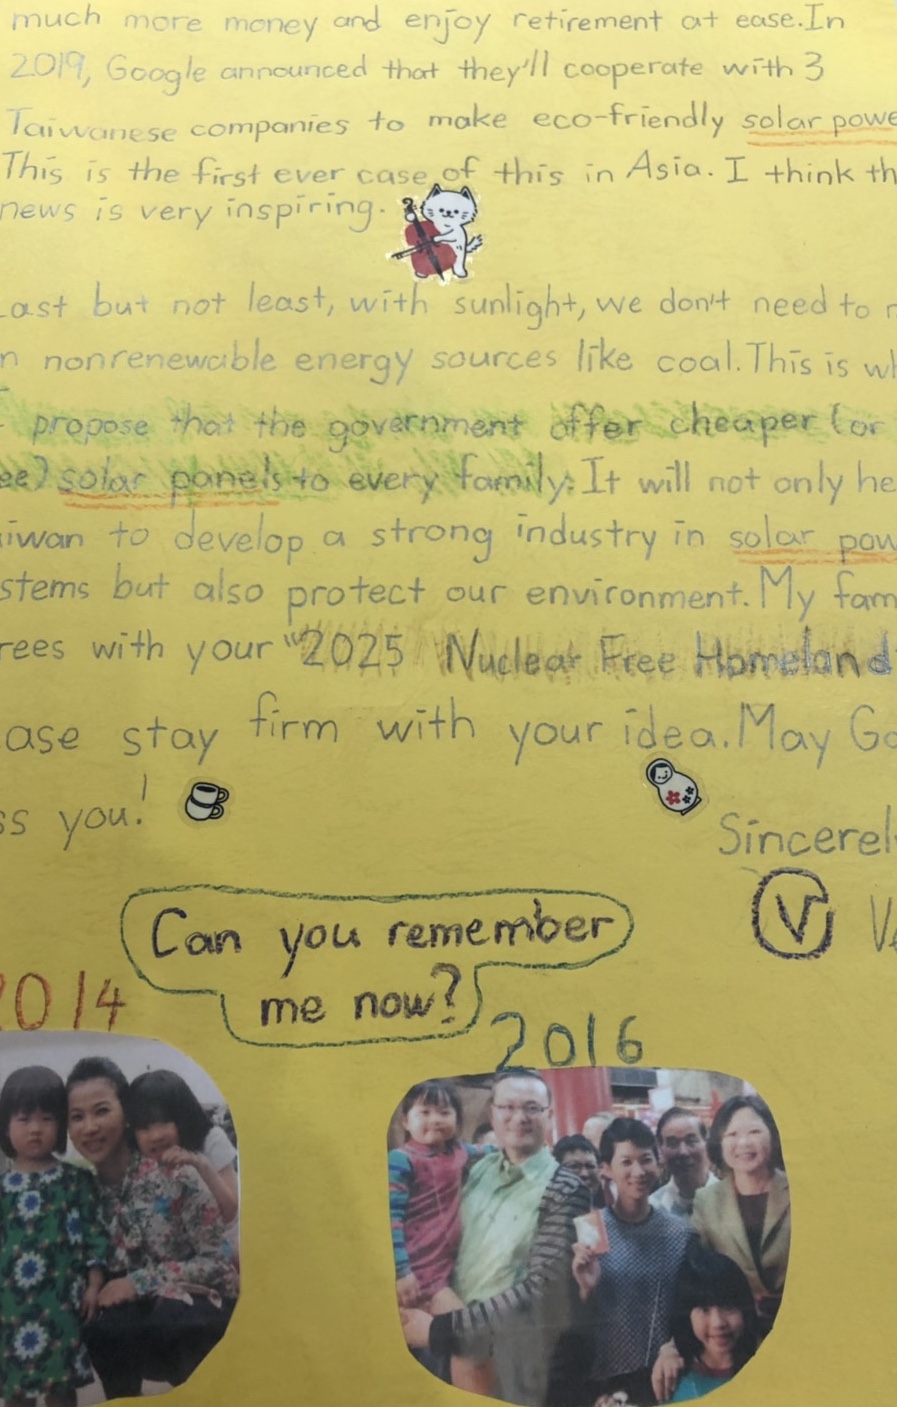 much more money and enjoy retirement at ease. In
2019, Google announced that they'll cooperate with 3
Taiwanese companies to make eco-friendly solar powe
This is the first ever case of this in Asia. I think th
news is very inspiring.
Last but not least, with sunlight, we don't need to r
n nonrenewable energy sources like coal. This is wh
I propose that the government offer cheaper (or
ee) solar panels to every family. It will not only he
iwan to develop a strong industry in solar pow
stems but also protect our environment. My fam
rees with your "2025 Nuclear Free Homeland
ase stay firm with your idea. May Go
ss you!
Sincerel
V Ve
Can you remember
me now?
2014
2016